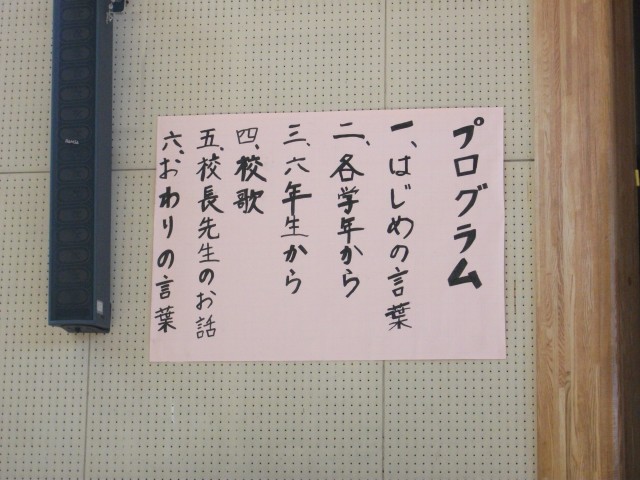 プログラム
一、はじめの言葉
二、各学年から
三、六年生から
四、校歌
五、校長先生のお話
六、おわりの言葉